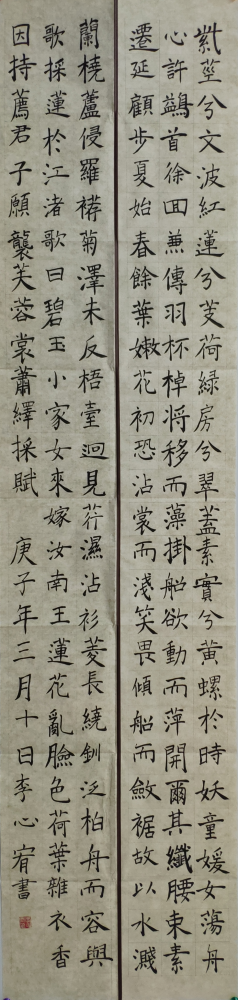 紫莖兮文波紅蓮兮芰荷緑房兮翠蓋素實兮黃螺於時妖童媛女蕩舟
心許鷁首徐囬兼傳羽杯棹将移而藻掛船欲動而萍開爾其纖腰束素
遷延顧步夏始春餘葉嫩花初恐沾裳而淺笑畏傾船而斂裾故以水濺
蘭橈蘆侵羅菊澤未反梧臺迥見荇濕沾衫菱長繞釧泛柏舟而容與
歌採蓮於江渚歌曰碧玉小家女來嫁汝南王蓮花亂臉色荷葉雜衣香
因持薦君子願襲芙蓉裳蕭繹採賦 庚子年三月十日李心宥書